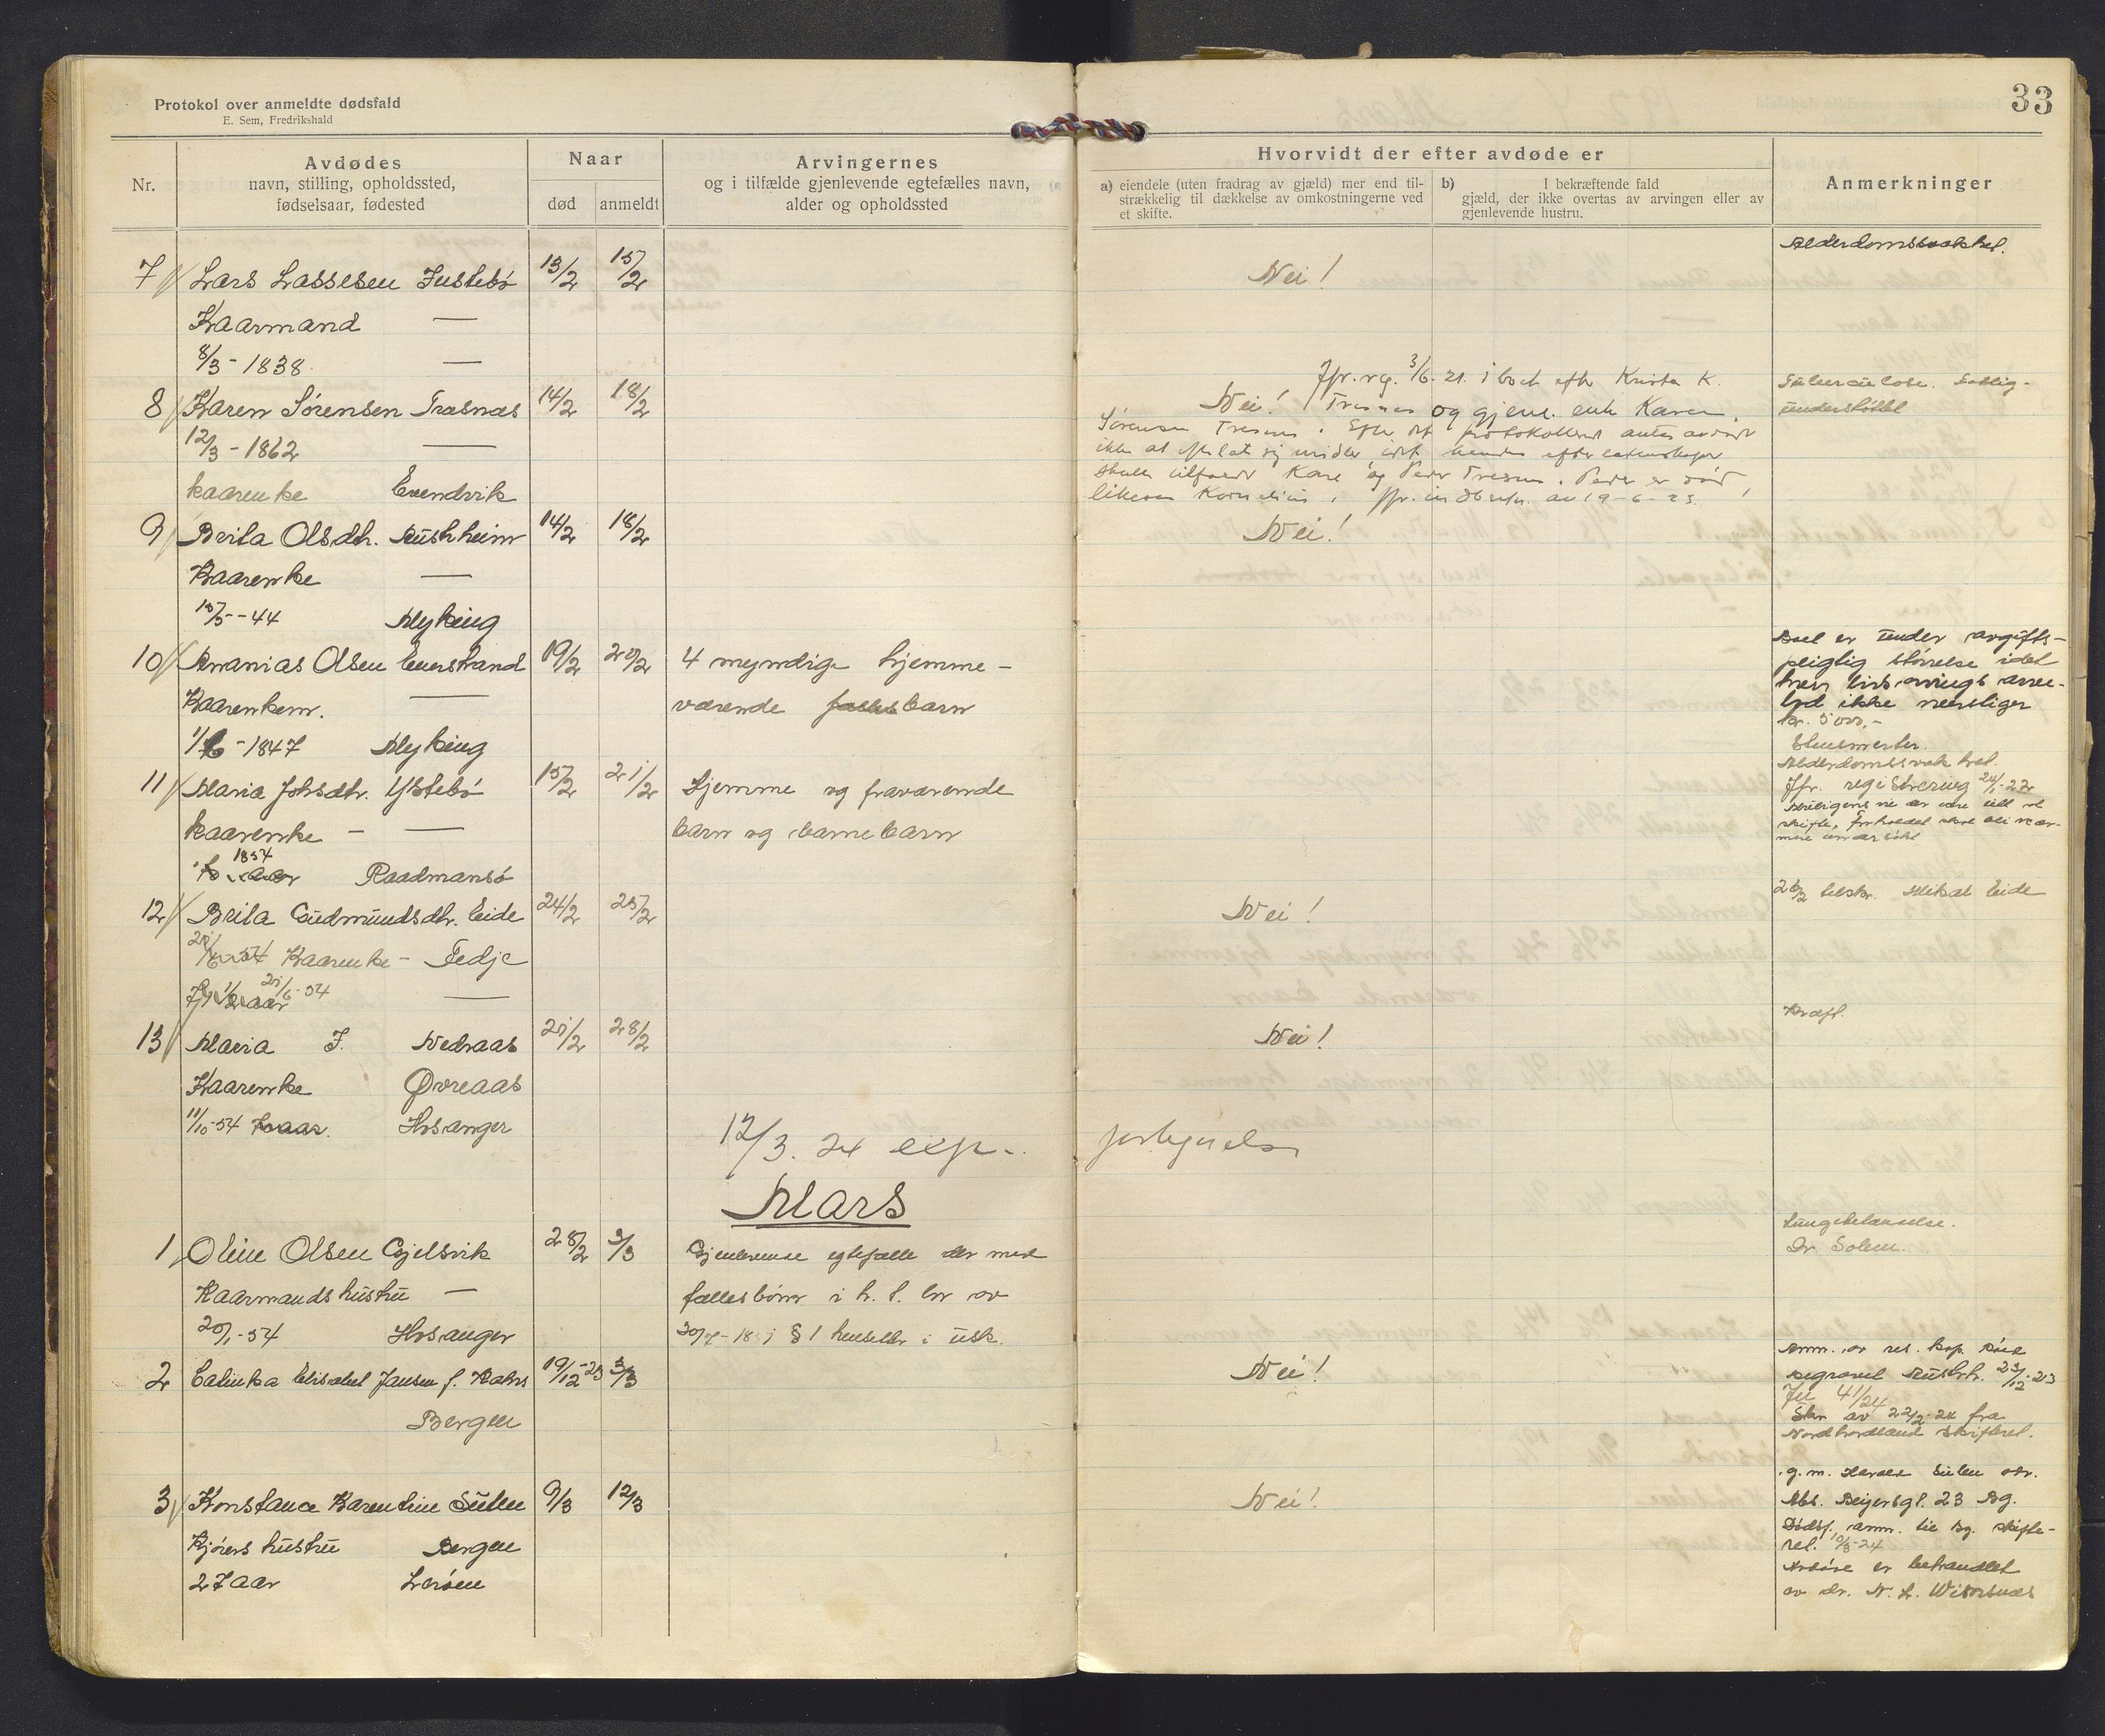 33
Protokol over anmeldte dødsfald
E. Sem, Fredrikshald
Nr.
Avdødes
navn, stilling, opholdssted,
fødselsaar, fødested
Naar
død
anmeldt
Arvingernes
og i tilfælde gjenlevende egtefælles navn,
alder og opholdssted
Hvorvidt der efter avdøde er
a) eiendele (uten fradrag av gjæld) mer end til-
strækkelig til dækkelse av omkostningerne ved
et skifte.
b) I bekræftende fald
gjæld, der ikke overtas av arvingen eller av
gjenlevende hustru.
Anmerkninger
Alderdomssvakhet.
7 Lars Lassesen Justebö 13/2 15/2 Nei!
Kaarmand —
8/3 - 1838 —
Jfr. reg. 3/6-21. i boet efter Krister K.
8 Karen Sørensen Træsnæs 14/2 18/2 Nei! Tresnes og gjenl. enke Karen
Tuberculose. Fattig-
understøttet
12/3 - 1862 —
Sørensen Tresnes. Efter det protokollerte antas avdøde
ikke at efterlate sig midler idet hendes efterlatenskaper
skulle tilfalde Kare og Peder Tresnes. Peder er død,
kaarenke Evendvik
likesaa Kornelius. Jfr. av 19-6-23.
9 Brita Olsdtr. Austrheim 14/2 18/2 Nei!
Kaarenke —
15/5 - 44 Myking
10 Ananias Olsen Leverstrand 19/2 20/2 4 myndige hjemme-
Kaarenkem. — værende fælles barn
1/6 - 1847 Myking
Boet er under avgifts-
pligtig størrelse idet
hver livsarvings arve-
lod ikke overstiger
kr. 5000,-
11 Maria Johsdtr. Ystebö 15/2 21/2 Hjemme og fraværende
kaarenke - — barn og barnebarn
1854 Raadmansö
Alderdomssvakhet.
Jfr. registrering 24/1-27
12 Brita Gudmundsdtr. Eide 24/2 25/2 Nei!
Kaarenke - Fedje
21/6-54 —
26/2 tilskr. Mikal Eide
13 Maria J. Nedraas 21/2 28/2 Nei!
Kræft.
Kaarenke Øvreaas
11/10-54 Hosanger
12/3. 24 exp. fortegnelse
Mars
1 Oline Olsen Gjelsvik 28/2 3/3 Gjenlevende egtefælle der med
Kaarmandshustru — fællesbörn i h. t. lov av
20/1-54 Hosanger 30/7-1851 § 1 henseller i usk.
Lungebetændelse.
Dr. Solem.
2 Catinka Elisabet Jansen f. Rahrs 19/12-23 3/3 Nei!
Bergen
Anm. av res. kap. Roll
Begravet Austrh. 23/12-23
Jnr 41/24
Skr av 22/2-24 fra
Nordhordland skifteret.
3 Konstance Karentine Sulen 9/3 12/3 Nei!
Kjørers hustru Bergen
27 aar Lerøen
g.m. Harald Sulen adr.
Abs. Beijersgt. 23 Bg.
Dødsf. anm. til Bg. skifte-
ret. 10/3-24
Avdøde er behandlet
av dr. N. L. Wisosnæs